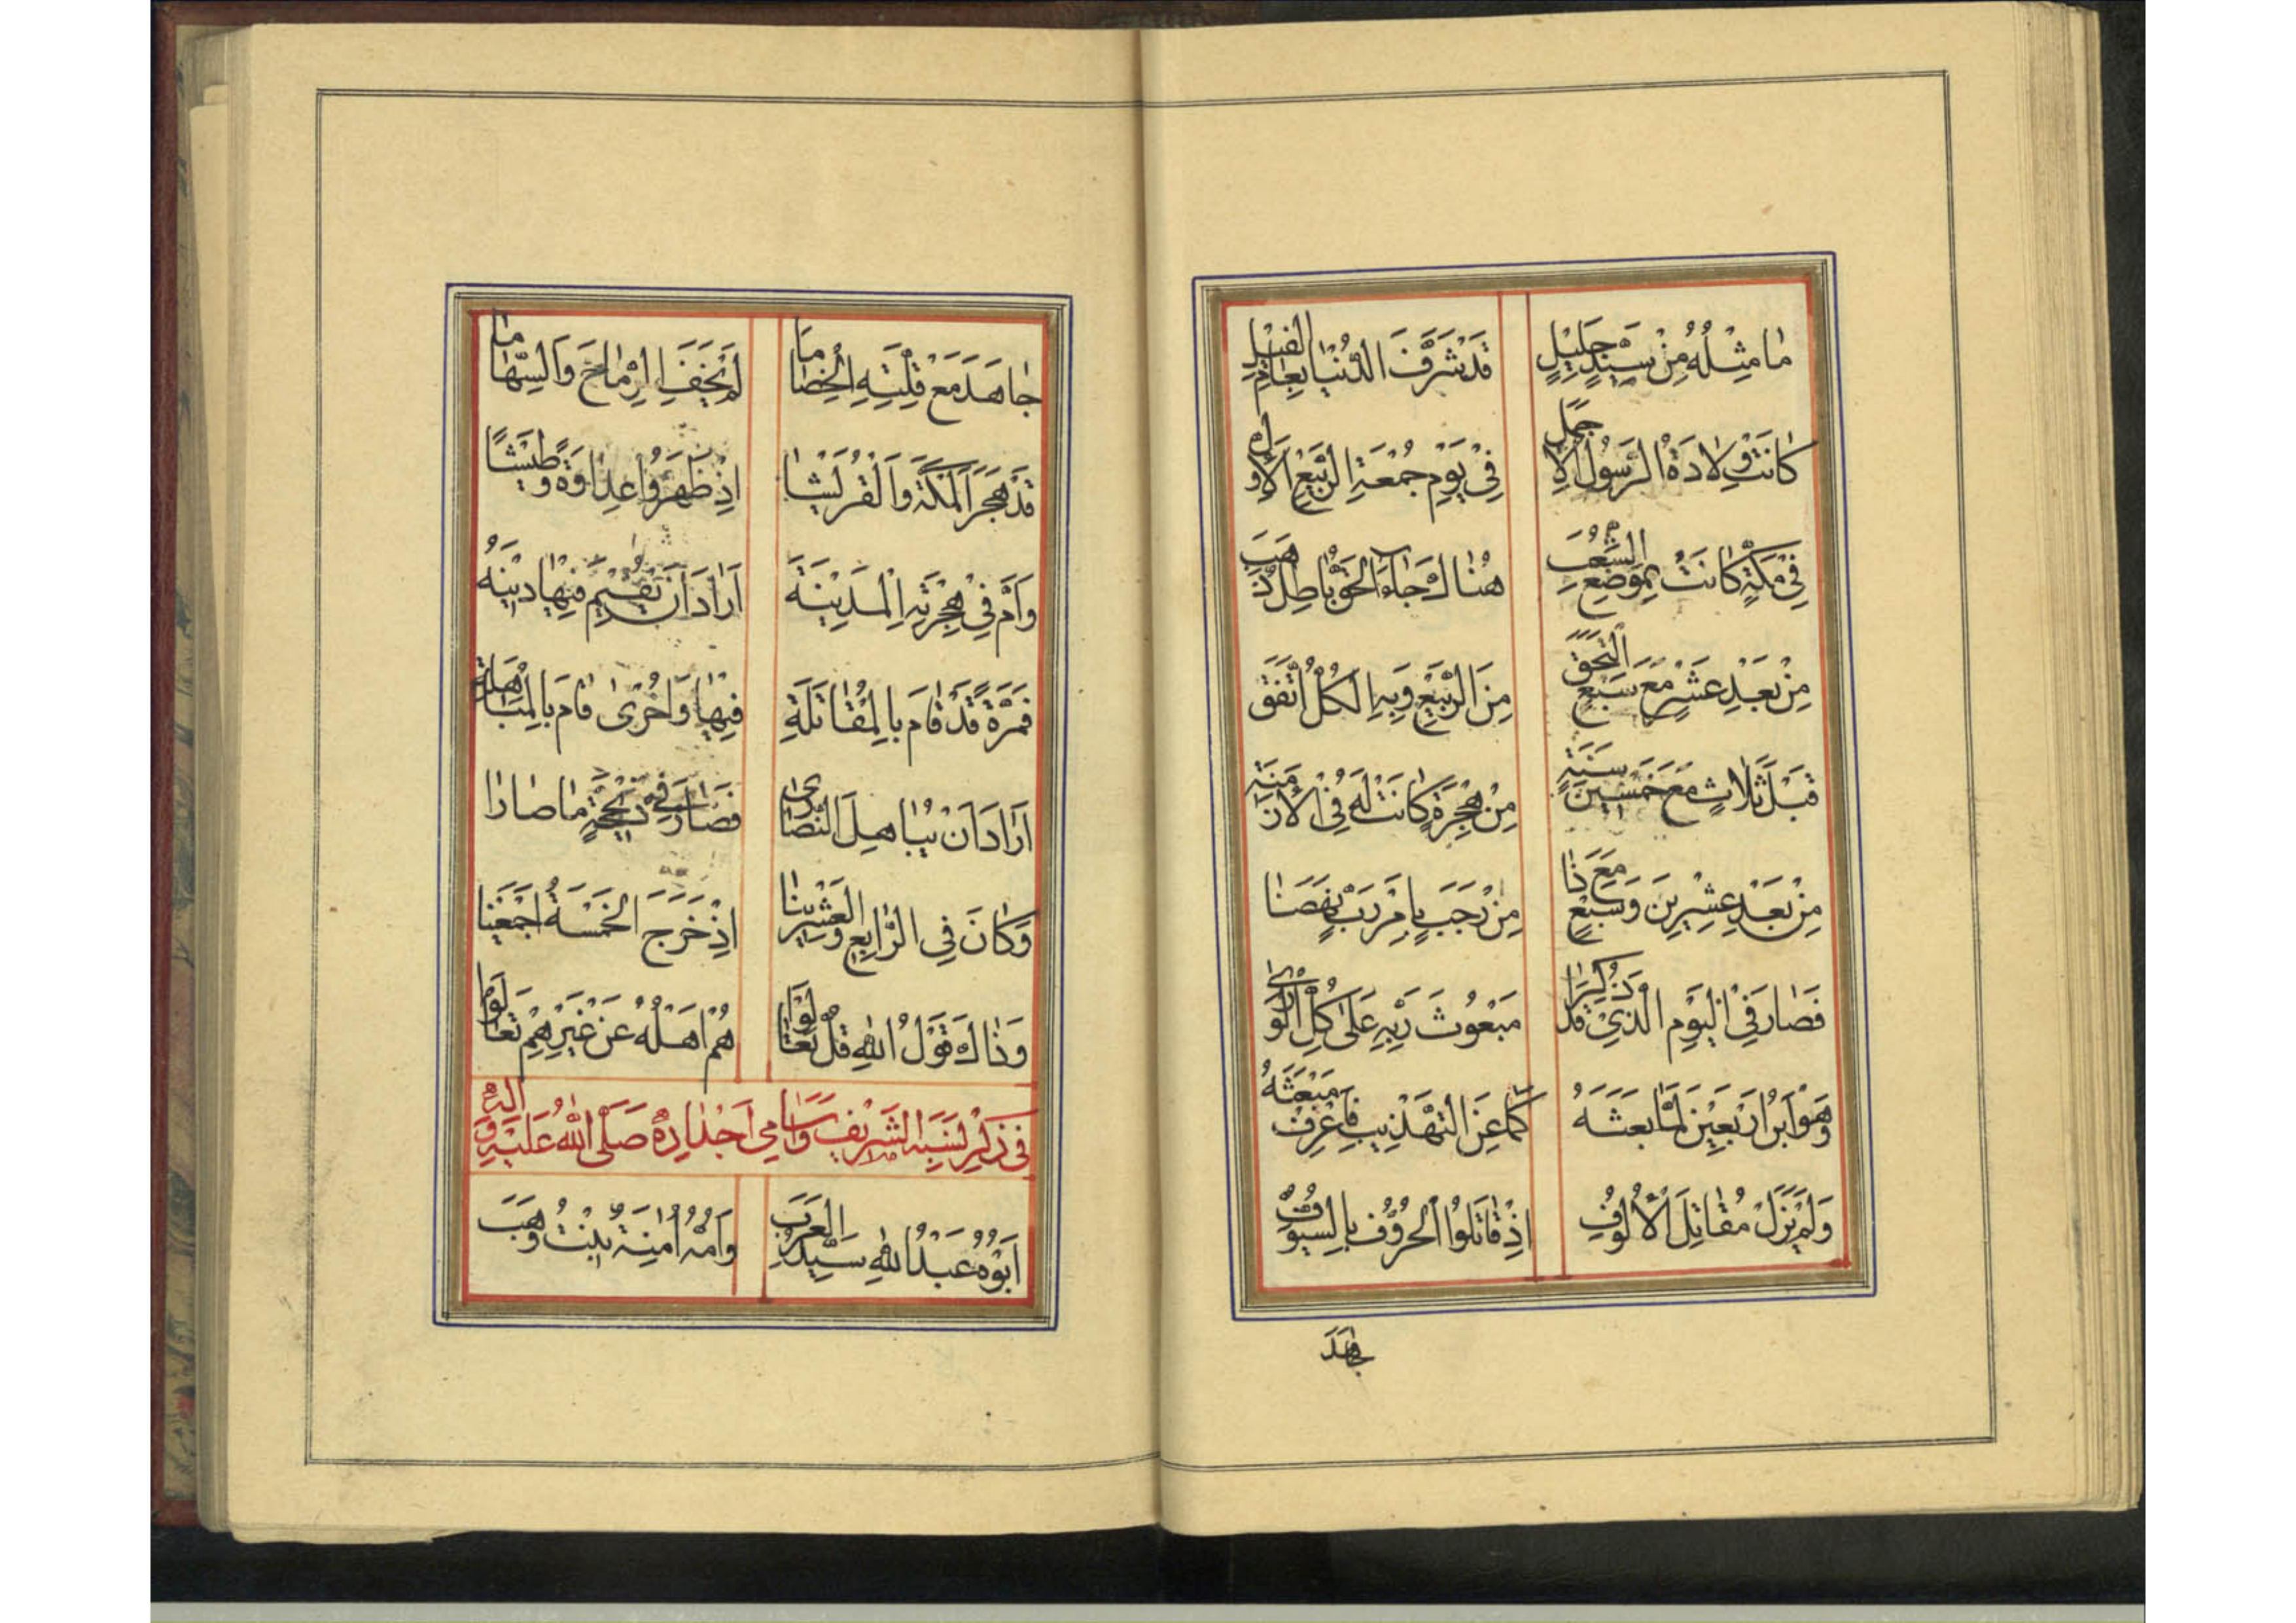 مَا مِثْلُهُ مِنْ سَيِّدٍ جَلِيلٍ قَدْ شَرَّفَ الدُّنْيَا بِعَامِ الْفِيلِ
كَانَتْ وِلَادَةُ الرَّسُولِ الْأَجْمَلِ فِي يَوْمِ جُمْعَةِ الرَّبِيعِ الْأَوَّلِ
فِي مَكَّةٍ كَانَتْ بِمَوْضِعِ الشِّعْبِ هُنَاكَ جَاءَ الْحَقُّ بَاطِلٌ ذَهَبَ
مِنْ بَعْدِ عَشْرٍ مَعَ سَبْعٍ الْتَحَقَ مِنَ الرَّبِيعِ وَبِهِ الْكُلُّ اتَّفَقَ
قَبْلَ ثَلَاثٍ مَعَ خَمْسِينَ سَنَةٍ مِنْ هِجْرَةٍ كَانَتْ لَهُ فِي الْأَزْمِنَةِ
مِنْ بَعْدِ عِشْرِينَ وَسَبْعٍ مَعَ ذَا مِنْ رَجَبٍ بِأَمْرِ رَبٍّ
فَصَارَ فِي الْيَوْمِ الَّذِي قَدْ ذُكِرَا مَبْعُوثَ رَبِّهِ عَلَى كُلِّ الْوَرَى
وَهْوَ ابْنُ أَرْبَعِينَ لَمَّا بَعَثَهُ كَمَا عَنِ التَّهْذِيبِ فَاعْرِفْ مَبْعَثَهُ
وَلَمْ يَزَلْ مُقَاتِلَ الْأُلُوفِ إِذْ قَاتَلُوا الْحُرُوفَ بِالسُّيُوفِ
جَاهَدَ
جَاهَدَ مَعَ قِلَّتِهِ الْخِصَامَا لَمْ يَخَفِ الرِّمَاحَ وَالسِّهَامَا
قَدْ هَجَرَ الْمَكَّةَ وَالْقُرَيْشَا إِذْ ظَهَرُوا عِدَاوَةً وَطَيْشًا
وَأَمَّ فِي هِجْرَتِهِ الْمَدِينَةَ أَرَادَ أَنْ يُقِيمَ فِيهَا دِينَهُ
فَمَرَّةً قَدْ قَامَ بِالْمُقَاتَلَةِ فِيهَا وَأُخْرَى قَامَ بِالْمُبَاهَلَةِ
أَرَادَ أَنْ يُبَاهِلَ النَّصَارَى فَصَارَ فِي ذِي حِجَّةٍ مَا صَارَا
وَكَانَ فِي الرَّابِعِ وَالْعِشْرِينَا إِذْ خَرَجَ الْخَمْسَةُ أَجْمَعِينَا
وَذَاكَ قَوْلُ اللّٰهِ قُلْ تَعَالَوْا هُمْ أَهْلُهُ عَنْ غَيْرِهِمْ تَعَالَوْا
فِي ذِكْرِ نَسَبِهِ الشَّرِيفِ وَأَسَامِي أَجْدَادِهِ صَلَّى اللّٰهُ عَلَيْهِ وَآلِهِ
أَبُوهُ عَبْدُ اللّٰهِ سَيِّدُ الْعَرَبِ وَأُمُّهُ آمِنَةُ بِنْتُ وَهَبَ